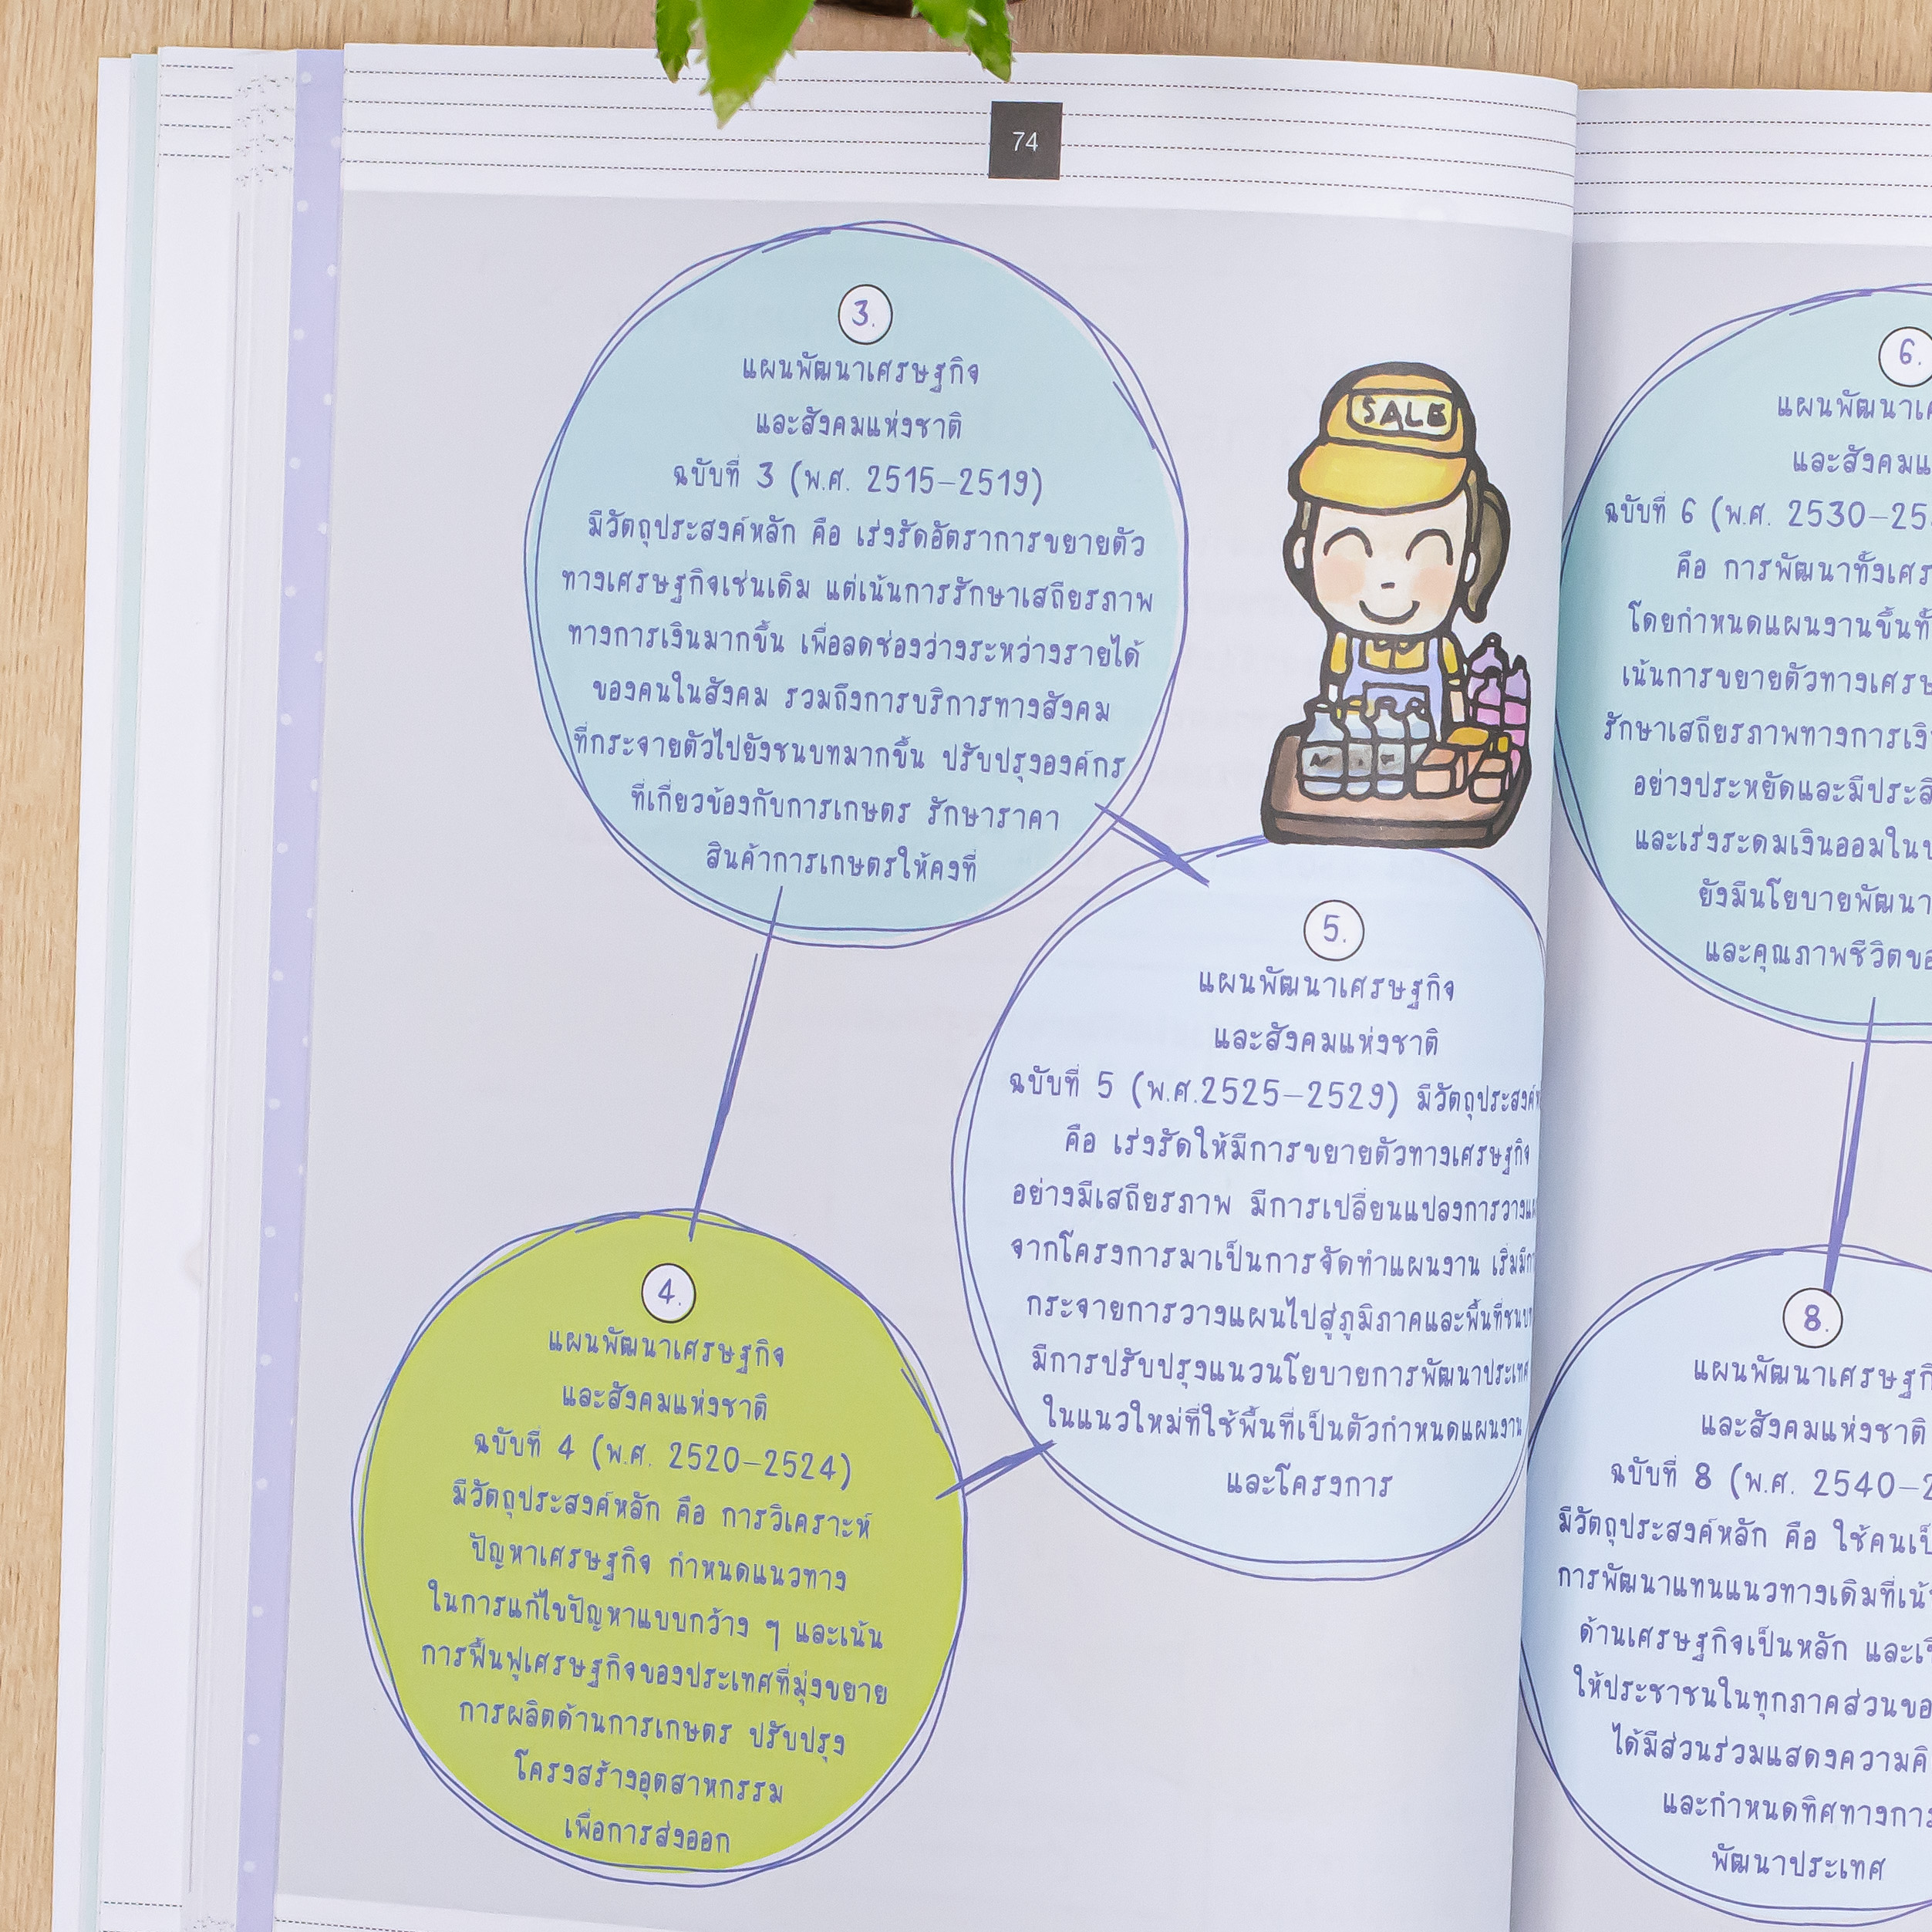 74
3.
แผนพัฒนาเศรษฐกิจ
และสังคมแห่งชาติ
ฉบับที่ 3 (พ.ศ. 2515–2519)
มีวัตถุประสงค์หลัก คือ เร่งรัดอัตราการขยายตัว
ทางเศรษฐกิจเช่นเดิม แต่เน้นการรักษาเสถียรภาพ
ทางการเงินมากขึ้น เพื่อลดช่องว่างระหว่างรายได้
ของคนในสังคม รวมถึงการบริการทางสังคม
ที่กระจายตัวไปยังชนบทมากขึ้น ปรับปรุงองค์กร
ที่เกี่ยวข้องกับการเกษตร รักษาราคา
สินค้าการเกษตรให้คงที่
SALE
4.
แผนพัฒนาเศรษฐกิจ
และสังคมแห่งชาติ
ฉบับที่ 4 (พ.ศ. 2520–2524)
มีวัตถุประสงค์หลัก คือ การวิเคราะห์
ปัญหาเศรษฐกิจ กำหนดแนวทาง
ในการแก้ไขปัญหาแบบกว้าง ๆ และเน้น
การฟื้นฟูเศรษฐกิจของประเทศที่มุ่งขยาย
การผลิตด้านการเกษตร ปรับปรุง
โครงสร้างอุตสาหกรรม
เพื่อการส่งออก
5.
แผนพัฒนาเศรษฐกิจ
และสังคมแห่งชาติ
ฉบับที่ 5 (พ.ศ.2525–2529) มีวัตถุประสงค์
คือ เร่งรัดให้มีการขยายตัวทางเศรษฐกิจ
อย่างมีเสถียรภาพ มีการเปลี่ยนแปลงการวาง
จากโครงการมาเป็นการจัดทำแผนงาน เริ่มมี
กระจายการวางแผนไปสู่ภูมิภาคและพื้นที่ชนบท
มีการปรับปรุงแนวนโยบายการพัฒนาประเทศ
ในแนวใหม่ที่ใช้พื้นที่เป็นตัวกำหนดแผนงาน
และโครงการ
6.
แผนพัฒนา
และสังคม
ฉบับที่ 6 (พ.ศ. 2530–25
คือ การพัฒนาทั้ง
โดยกำหนดแผนงานขึ้น
เน้นการขยายตัวทาง
รักษาเสถียรภาพทางการ
อย่างประหยัดและมี
และเร่งระดมเงินออมใน
ยังมีนโยบายพัฒนา
และคุณภาพชีวิต
8.
แผนพัฒนา
และสังคมแห่งชาติ
ฉบับที่ 8 (พ.ศ. 2540–2
มีวัตถุประสงค์หลัก คือ ใช้คน
การพัฒนาแทนแนวทางเดิมที่
ด้านเศรษฐกิจเป็นหลัก และ
ให้ประชาชนในทุกภาคส่วน
ได้มีส่วนร่วมแสดงความ
และกำหนดทิศทาง
พัฒนาประเทศ